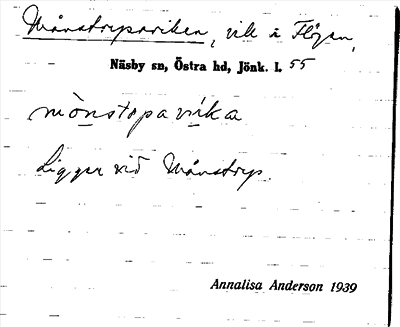 Månstrypsviken, vik i Flögen,
Näsby sn, Östra hd, Jönk. l. 55
mònstopavika
Ligger vid Månstryp.
Annalisa Anderson 1939